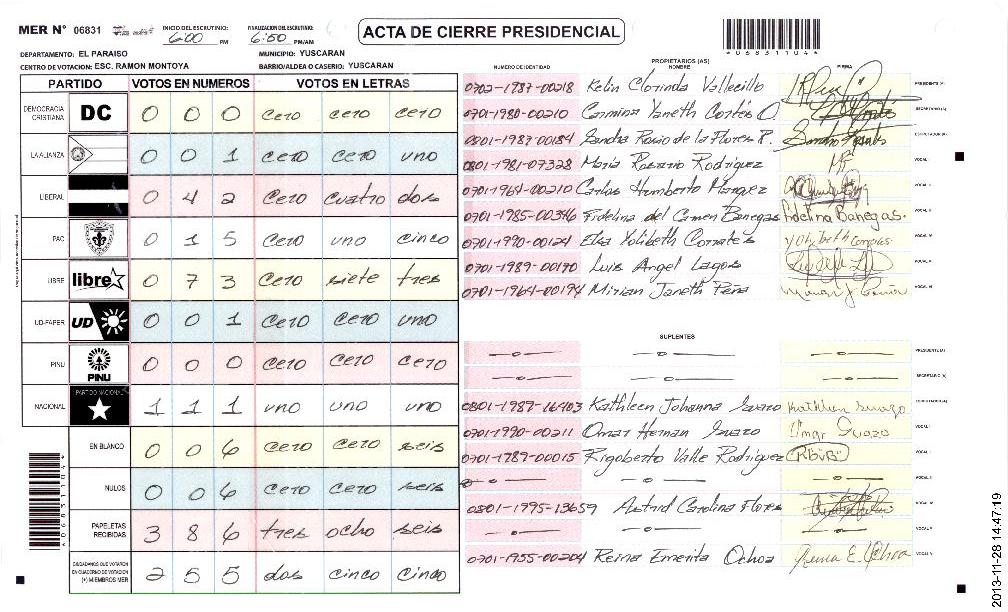 MER N° 06831 INICIO DEL ESCRUTINIO: 6:00 PM FINALIZACION DEL ESCRUTINIO: 6:50 PM/AM
ACTA DE CIERRE PRESIDENCIAL
*06831104*
DEPARTAMENTO: EL PARAISO MUNICIPIO: YUSCARAN
CENTRO DE VOTACION: ESC. RAMON MONTOYA BARRIO/ALDEA O CASERIO: YUSCARAN
PARTIDO VOTOS EN NUMEROS VOTOS EN LETRAS
DEMOCRACIA CRISTIANA DC 0 0 0 cero cero cero
LA ALIANZA 0 0 1 cero cero uno
LIBERAL 0 4 2 cero cuatro dos
PAC 0 1 5 cero uno cinco
LIBRE libre 0 7 3 cero siete tres
UD-FAPER UD 0 0 1 cero cero uno
PINU PINU 0 0 0 cero cero cero
NACIONAL PARTIDO NACIONAL 1 1 1 uno uno uno
EN BLANCO 0 0 6 cero cero seis
NULOS 0 0 6 cero cero seis
PAPELETAS RECIBIDAS 3 8 6 tres ocho seis
CIUDADANOS QUE VOTARON EN CUADERNO DE VOTACION (+) MIEMBROS MER 2 5 5 dos cinco cinco
*06831104*
PROPIETARIOS (AS)
NUMERO DE IDENTIDAD NOMBRE FIRMA
0703-1987-00218 Kelin Clorinda Vallecillo PRESIDENTE (A)
0701-1980-00210 Carmina Yaneth Cortés O. SECRETARIO (A)
0801-1987-00184 Sandra Rocio de la Flores R. ESCRUTADOR (A)
0801-1981-07328 Maria Rosario Rodriguez VOCAL I
0701-1964-00210 Carlos Humberto Marquez VOCAL II
0701-1985-00346 Fidelina del Carmen Banegas Fidelina Banegas. VOCAL III
0701-1990-00124 Elsa Yolibeth Corrales Yolibeth Corrales VOCAL IV
0701-1989-00170 Luis Angel Lagos VOCAL V
0701-1964-00194 Mirian Janeth Peña VOCAL VI
SUPLENTES
PRESIDENTE (A)
SECRETARIO (A)
0801-1987-16403 Kathleen Johanna Suazo Kathleen Suazo ESCRUTADOR (A)
0701-1990-00211 Omar Hernan Suazo Omar Suazo VOCAL I
0701-1789-00015 Rigoberto Valle Rodriguez VOCAL II
VOCAL III
0801-1995-13659 Astrid Carolina Flores VOCAL IV
VOCAL V
0701-1955-00204 Reina Emerita Ochoa Reina E. Ochoa VOCAL VI
2013-11-28 14:47:19